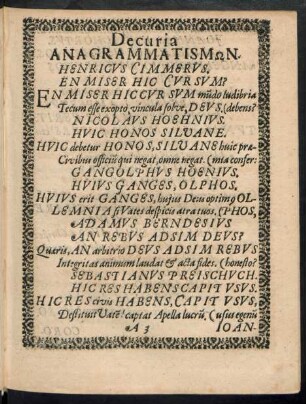 Decuria
ANAGRAMMATISMΩN.
HENRICVS CIMMERVS.
EN MISER HIC CVRSVM?
EN MISER HIC CVRSVM mūdo ludibria
Tecum esse exopto, vincula solve, DEVS, (debens?
NICOLAVS HOEHNIVS.
HVIC HONOS SILVANE.
HVIC debetur HONOS, SILVANE huic præ-
Civibus officiū qui negat, omne negat. (mia confer:
GANGOLPHVS HOENIVS.
HVIVS GANGES, OLPHOS,
HVIVS erit GANGES, hujus Deus optimꝯ OL-
LEMNIA si Vates despicis atra tuos, (PHOS,
ADAMVS BERNDESIVS
AN REBVS ADSIM DEVS?
Quæris, AN arbitrio DEVS ADSIM REBVS
Integritas animum laudat & acta fides. (honesto?
SEBASTIANVS PREISCHVCH.
HIC RES HABENS CAPIT VSVS.
HIC RES civis HABENS, CAPIT VSVS,
Destituit Vatē! captat Apella lucrū, (usus egenū
A 3 IOAN-